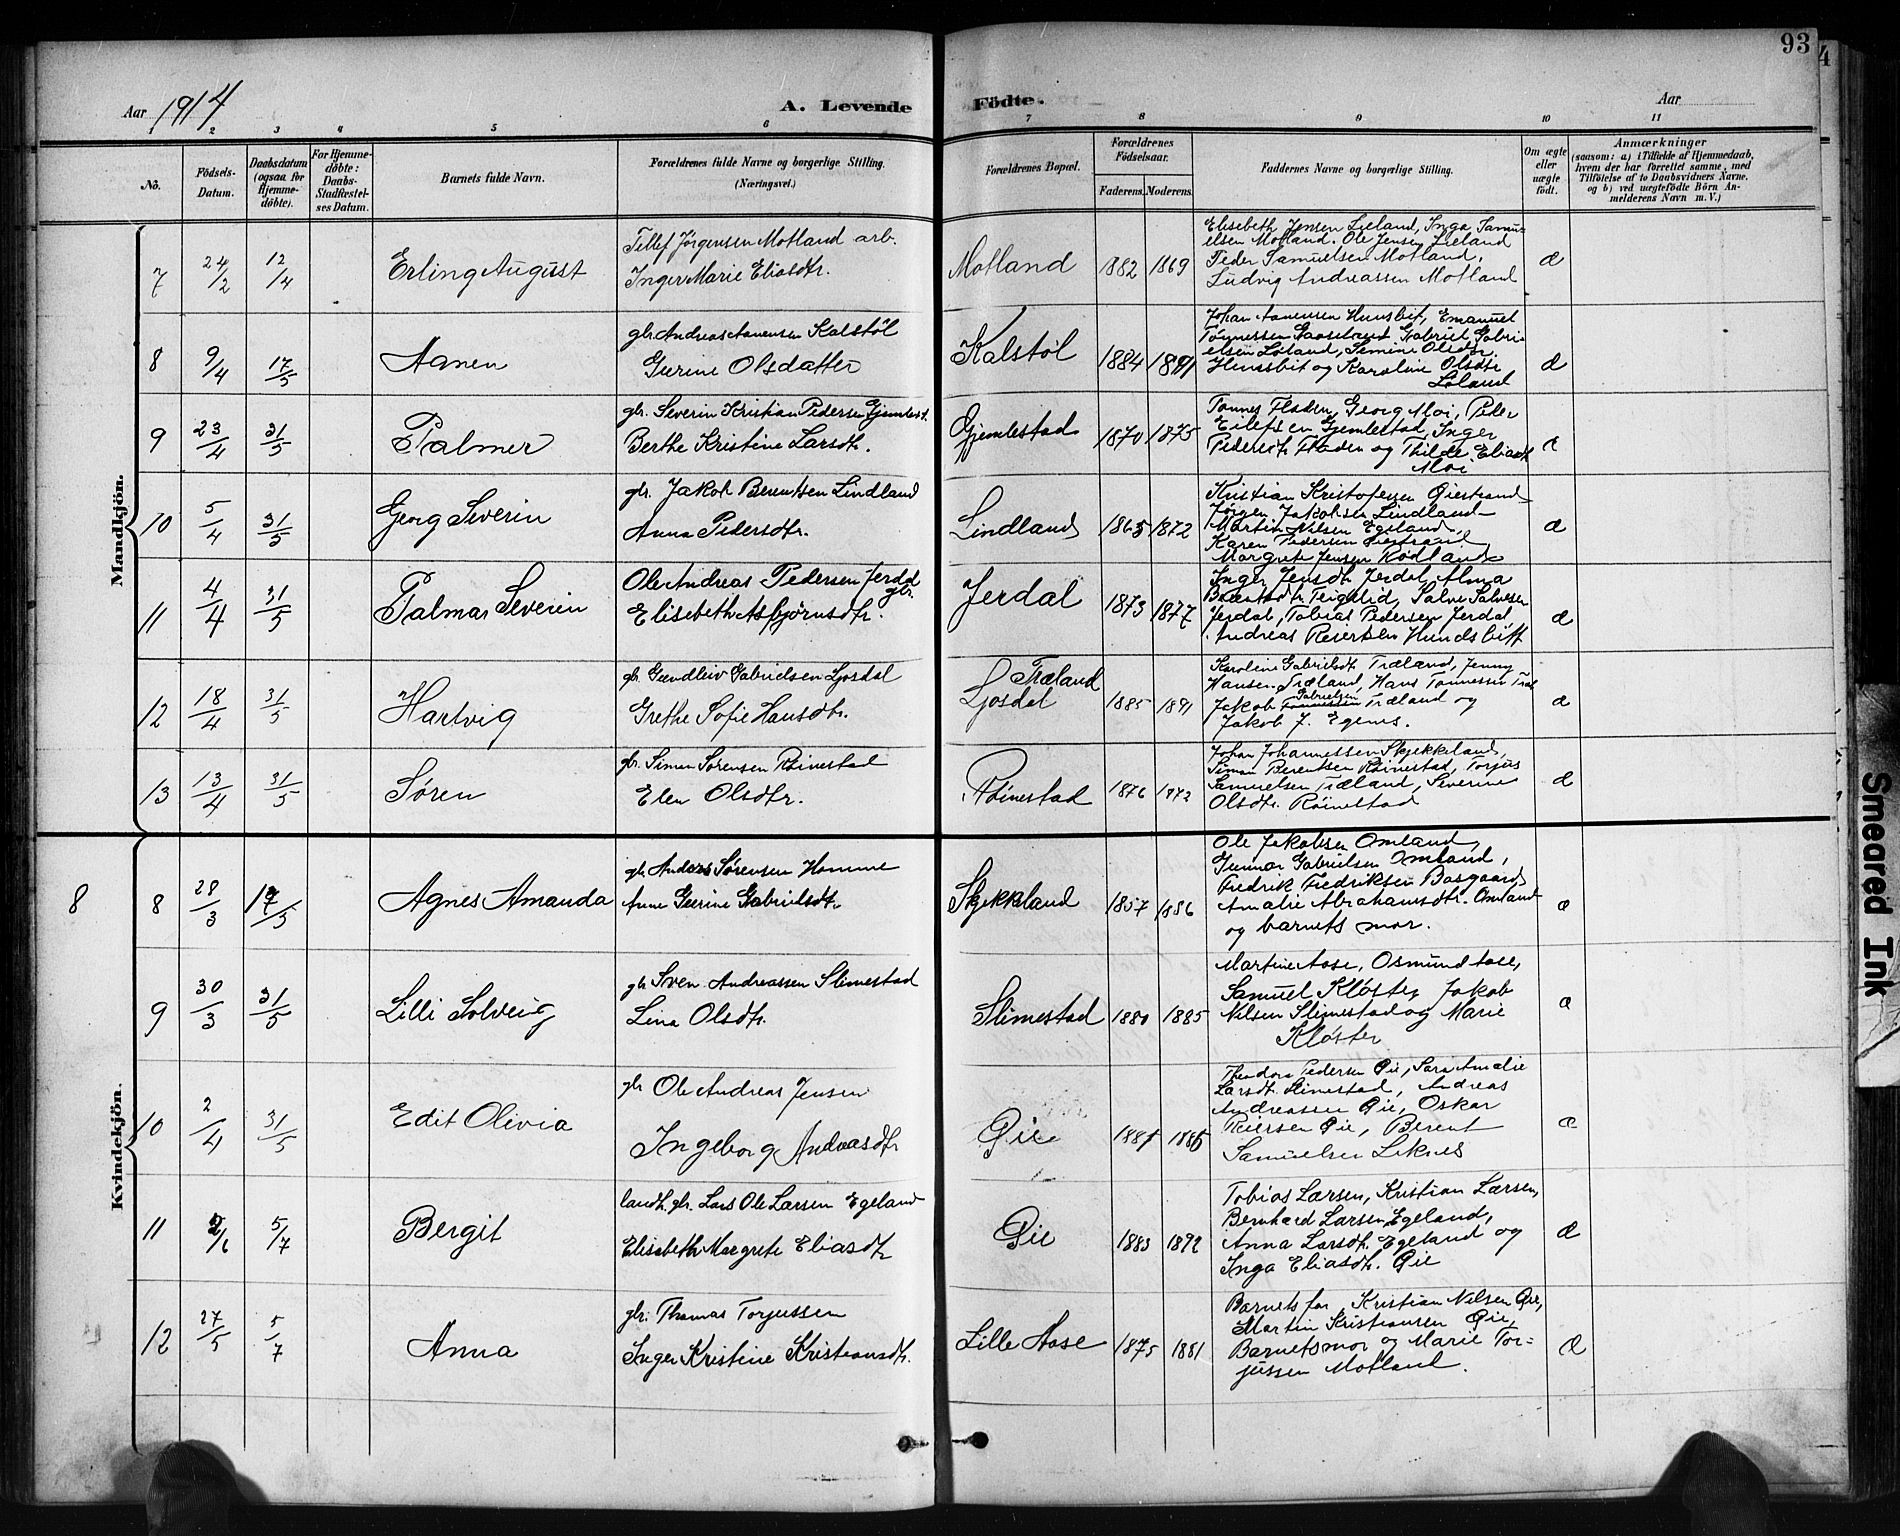 93
4
Aar 1914
A. Levende Födte.
Aar
2 3 4 5 6 7 8 9 10 11
No.
Födsels-
Datum.
Daabsdatum
(ogsaa for
Hjemme-
döbte).
For Hjemme-
döbte:
Daabs-
Stadfæstel-
ses Datum.
Barnets fulde Navn.
Forældrenes fulde Navne og borgerlige Stilling.
(Næringsvei.)
Forældrenes Bopæl.
Forældrenes
Födselsaar.
Faderens.
Moderens.
Faddernes Navne og borgerlige Stilling.
Om ægte
eller
uægte
födt.
Anmærkninger
(saasom: a) i Tilfælde af Hjemmedaab,
hvem der har forrettet samme, med
Tilföielse af to Daabsvidners Navne,
og b) ved uægtefödte Börn An-
melderens Navn m. V.)
Mandkjön.
7 24/2 12/4 Erling August
Tellef Jørgensen Motland arb.
Inger Marie Eliasdtr.
Motland 1882 1869
Elisebeth Jensen Lieland, Inga Samu-
elsen Motland. Ole Jensen Lieland
Peder Samuelsen Motland,
Ludvig Andreassen Motland
æ
8 9/4 17/5 Aanen
gbr. Andreas Aanensen Kalstøl
Gurine Olsdatter
Kalstøl 1884 1891
Johan Aanensen Hunsbit, Emanuel
Tønnessen Gabriel Gabri-
elsen Løland, Semine Olsdtr.
Hunsbit og Karoline Olsdtr
Løland
æ
9 23/4 31/5 Palmer
gbr. Severin Kristian Pedersen Gjemlest.
Berthe Kristine Larsdtr.
Gjemlestad 1870 1875
Tønnes Fladen, Georg Moi, Peder
Eilefsen Gjemlestad, Inger
Pedersdtr. Fladen og Thilde Eliasdtr
Moi
æ
10 5/4 31/5 Georg Severin
gbr. Jakob Berentsen Lindland
Anna Pedersdtr.
Lindland 1865 1872
Kristian Kristofersen Øiestrand
Jørgen Jakobsen Lindland
Martin Nilsen Egeland
Karen Pedersen Øiestrand
Margrete Jensen Rødland
æ
11 4/4 31/5 Palmar Severin
Ole Andreas Pedersen Jerdal
gbr.
Elisebeth Asbjørnsdtr.
Jerdal 1873 1877
Inger Jensdtr Jerdal, Alma
Teigelid, Salve Salvesen
Jerdal, Tobias Pedersen Jerdal
Andreas Reiersen Hundsbitt
æ
12 18/4 31/5 Hartvig
gb. Gundleiv Gabrielsen Ljosdal
Grethe Sofie Hansdtr.
Træland
Ljosdal 1885 1891
Karoline Gabrielsdtr. Træland, Jenny
Hansen Træland, Hans Tønnessen Træl.
Jakob Gabrielsen Træland og
Jakob J. Egenes.
æ
13 13/4 31/5 Søren
gb. Simon Sørensen Røinestad
Elen Olsdtr.
Røinestad 1876 1872
Johan Johannessen Skjekkeland,
Simon Berentsen Røinestad, Torjus
Samuelsen Træland, Severine
Olsdtr. Røinestad
æ
Kvindekjön.
8
8 28/3 17/5 Agnes Amanda
gb. Anders Sørensen Homme
Anne Gurine Gabrielsdtr.
Skjekkland 1857 1886
Ole Jakobsen Omland,
Gunnar Gabrielsen Omland,
Fredrik Fredriksen Basgaard
Amalie Abrahamsdtr. Omland
og barnets mor.
æ
9 30/3 31/5 Lilli Solveig
gb. Sven Andreassen Slimestad
Lina Olsdtr.
Slimestad 1880 1885
Martine Aase, Osmund Aase,
Samuel Kløster, Jakob
Nilsen Slimestad og Marie
Kløster
æ
10 2/4 31/5 Edit Olivia
gb. Ole Andreas Jensen
Ingeborg Andreasdtr
Øie 1886
Theodora Pedersen Øie, Sara Amalie
Larsdtr. Slimestad, Andreas
Andreassen Øie, Oskar
Reiersen Øie, Berent
Samuelsen Liknes
æ
11 2/6 5/7 Bergit
landh. gbr. Lars Ole Larsen Egeland
Elisabeth Margrete Eliasdtr
Øie 1883 1892
Tobias Larsen, Kristian Larsen,
Bernhard Larsen Egeland,
Anna Larsdtr. Egeland og
Inga Eliasdtr. Øie
æ
12 27/5 5/7 Anna
gbr. Thomas Torjussen
Inger Kristine Kristiansdtr.
Lille Aase 1875 1881
Barnets far, Kristian Nilsen Øie,
Martin Kristiansen Øie,
Barnetsmor og Marie Tor-
jussen Motland.
Æ
Smeared Ink